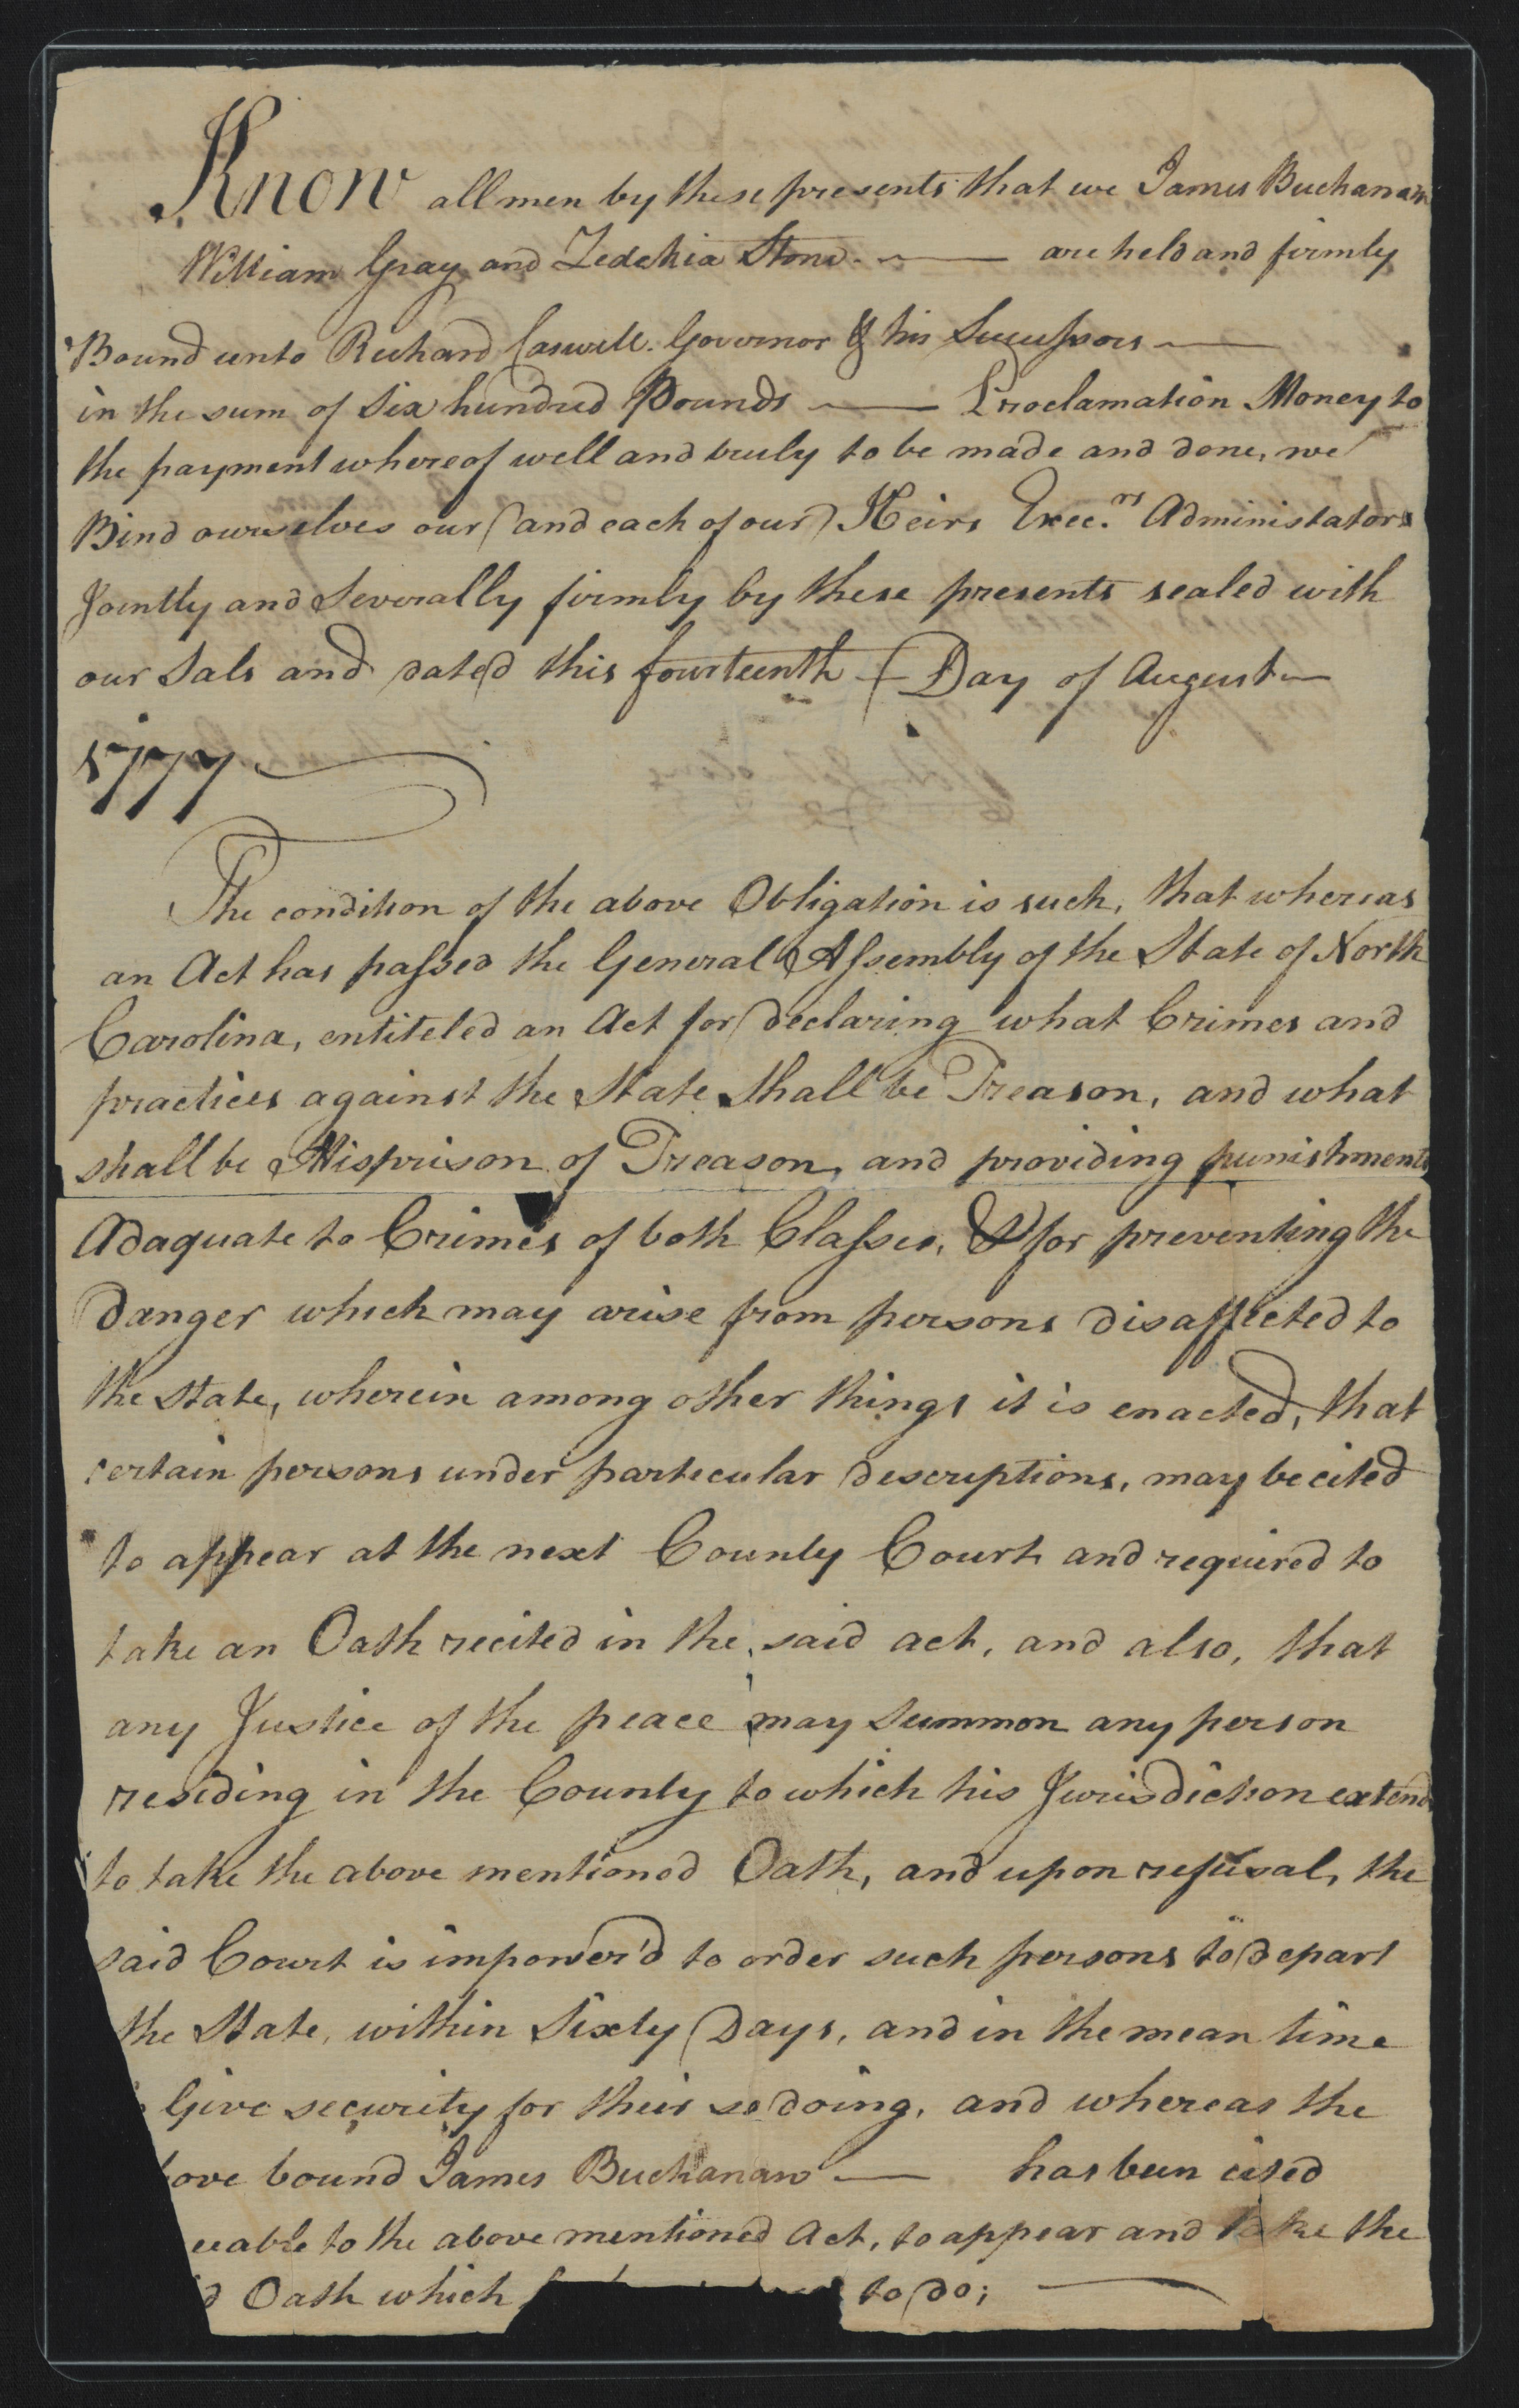 Know all men by these presents that we James Buchanan
William Gray and Zedekia Stone are held and firmly
Bound unto Richard Caswell Governor & his Successors
in the sum of Six hundred Pounds Proclamation Money to
the payment whereof well and truly to be made and done, we
Bind ourselves our (and each of our) Heirs Exec.rs Administators
Jointly and Severally firmly by these presents sealed with
our Sals and dated this fourteenth Day of August
1777
The condition of the above Obligation is such, that whereas
an Act has passed the General Assembly of the State of North
Carolina, entiteled an Act for declaring what Crimes and
practices against the State shall be Treason, and what
shall be Misprison of Treason, and providing punishments
Adaquate to Crimes of both Classes, & for preventing the
Danger which may arise from persons disaffected to
the State, wherein among other things it is enacted, that
certain persons under particular descriptions, may be cited
to appear at the next County Court and required to
take an Oath recited in the said act, and also, that
any Justice of the peace may summon any person
residing in the County to which his Jurisdiction extends
to take the above mentioned Oath, and upon refusal, the
said Court is impower'd to order such persons to depart
the State, within Sixty Days, and in the mean time
Give security for their so doing, and whereas the
ove bound James Buchanan has been cited
eeable to the above mentioned Act, to appear and take the
d Oath which to do;